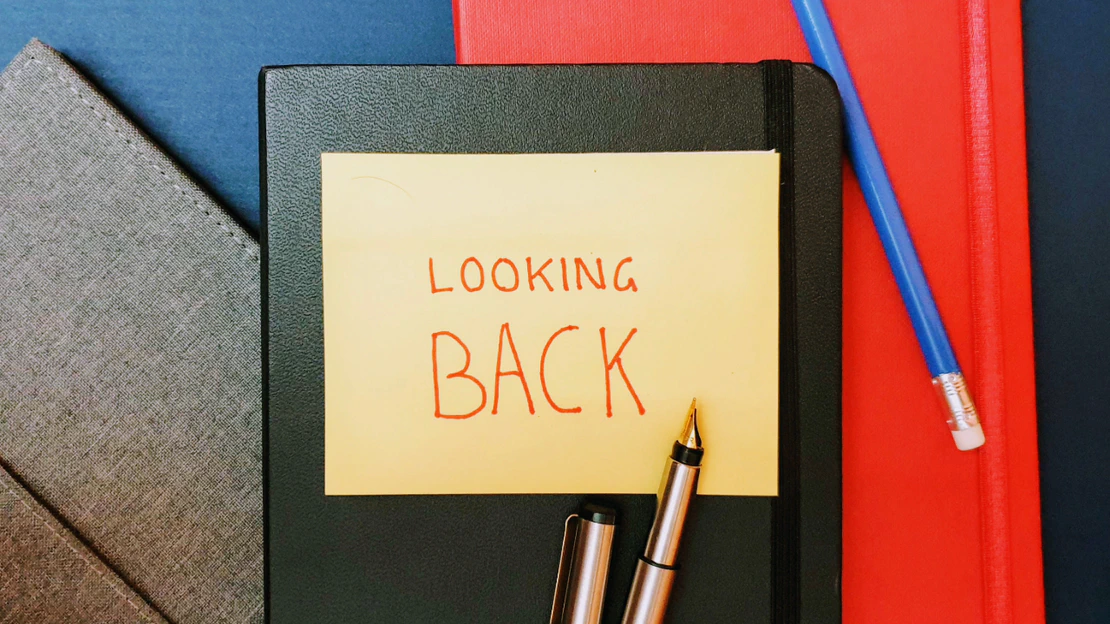 LOOKING
BACK